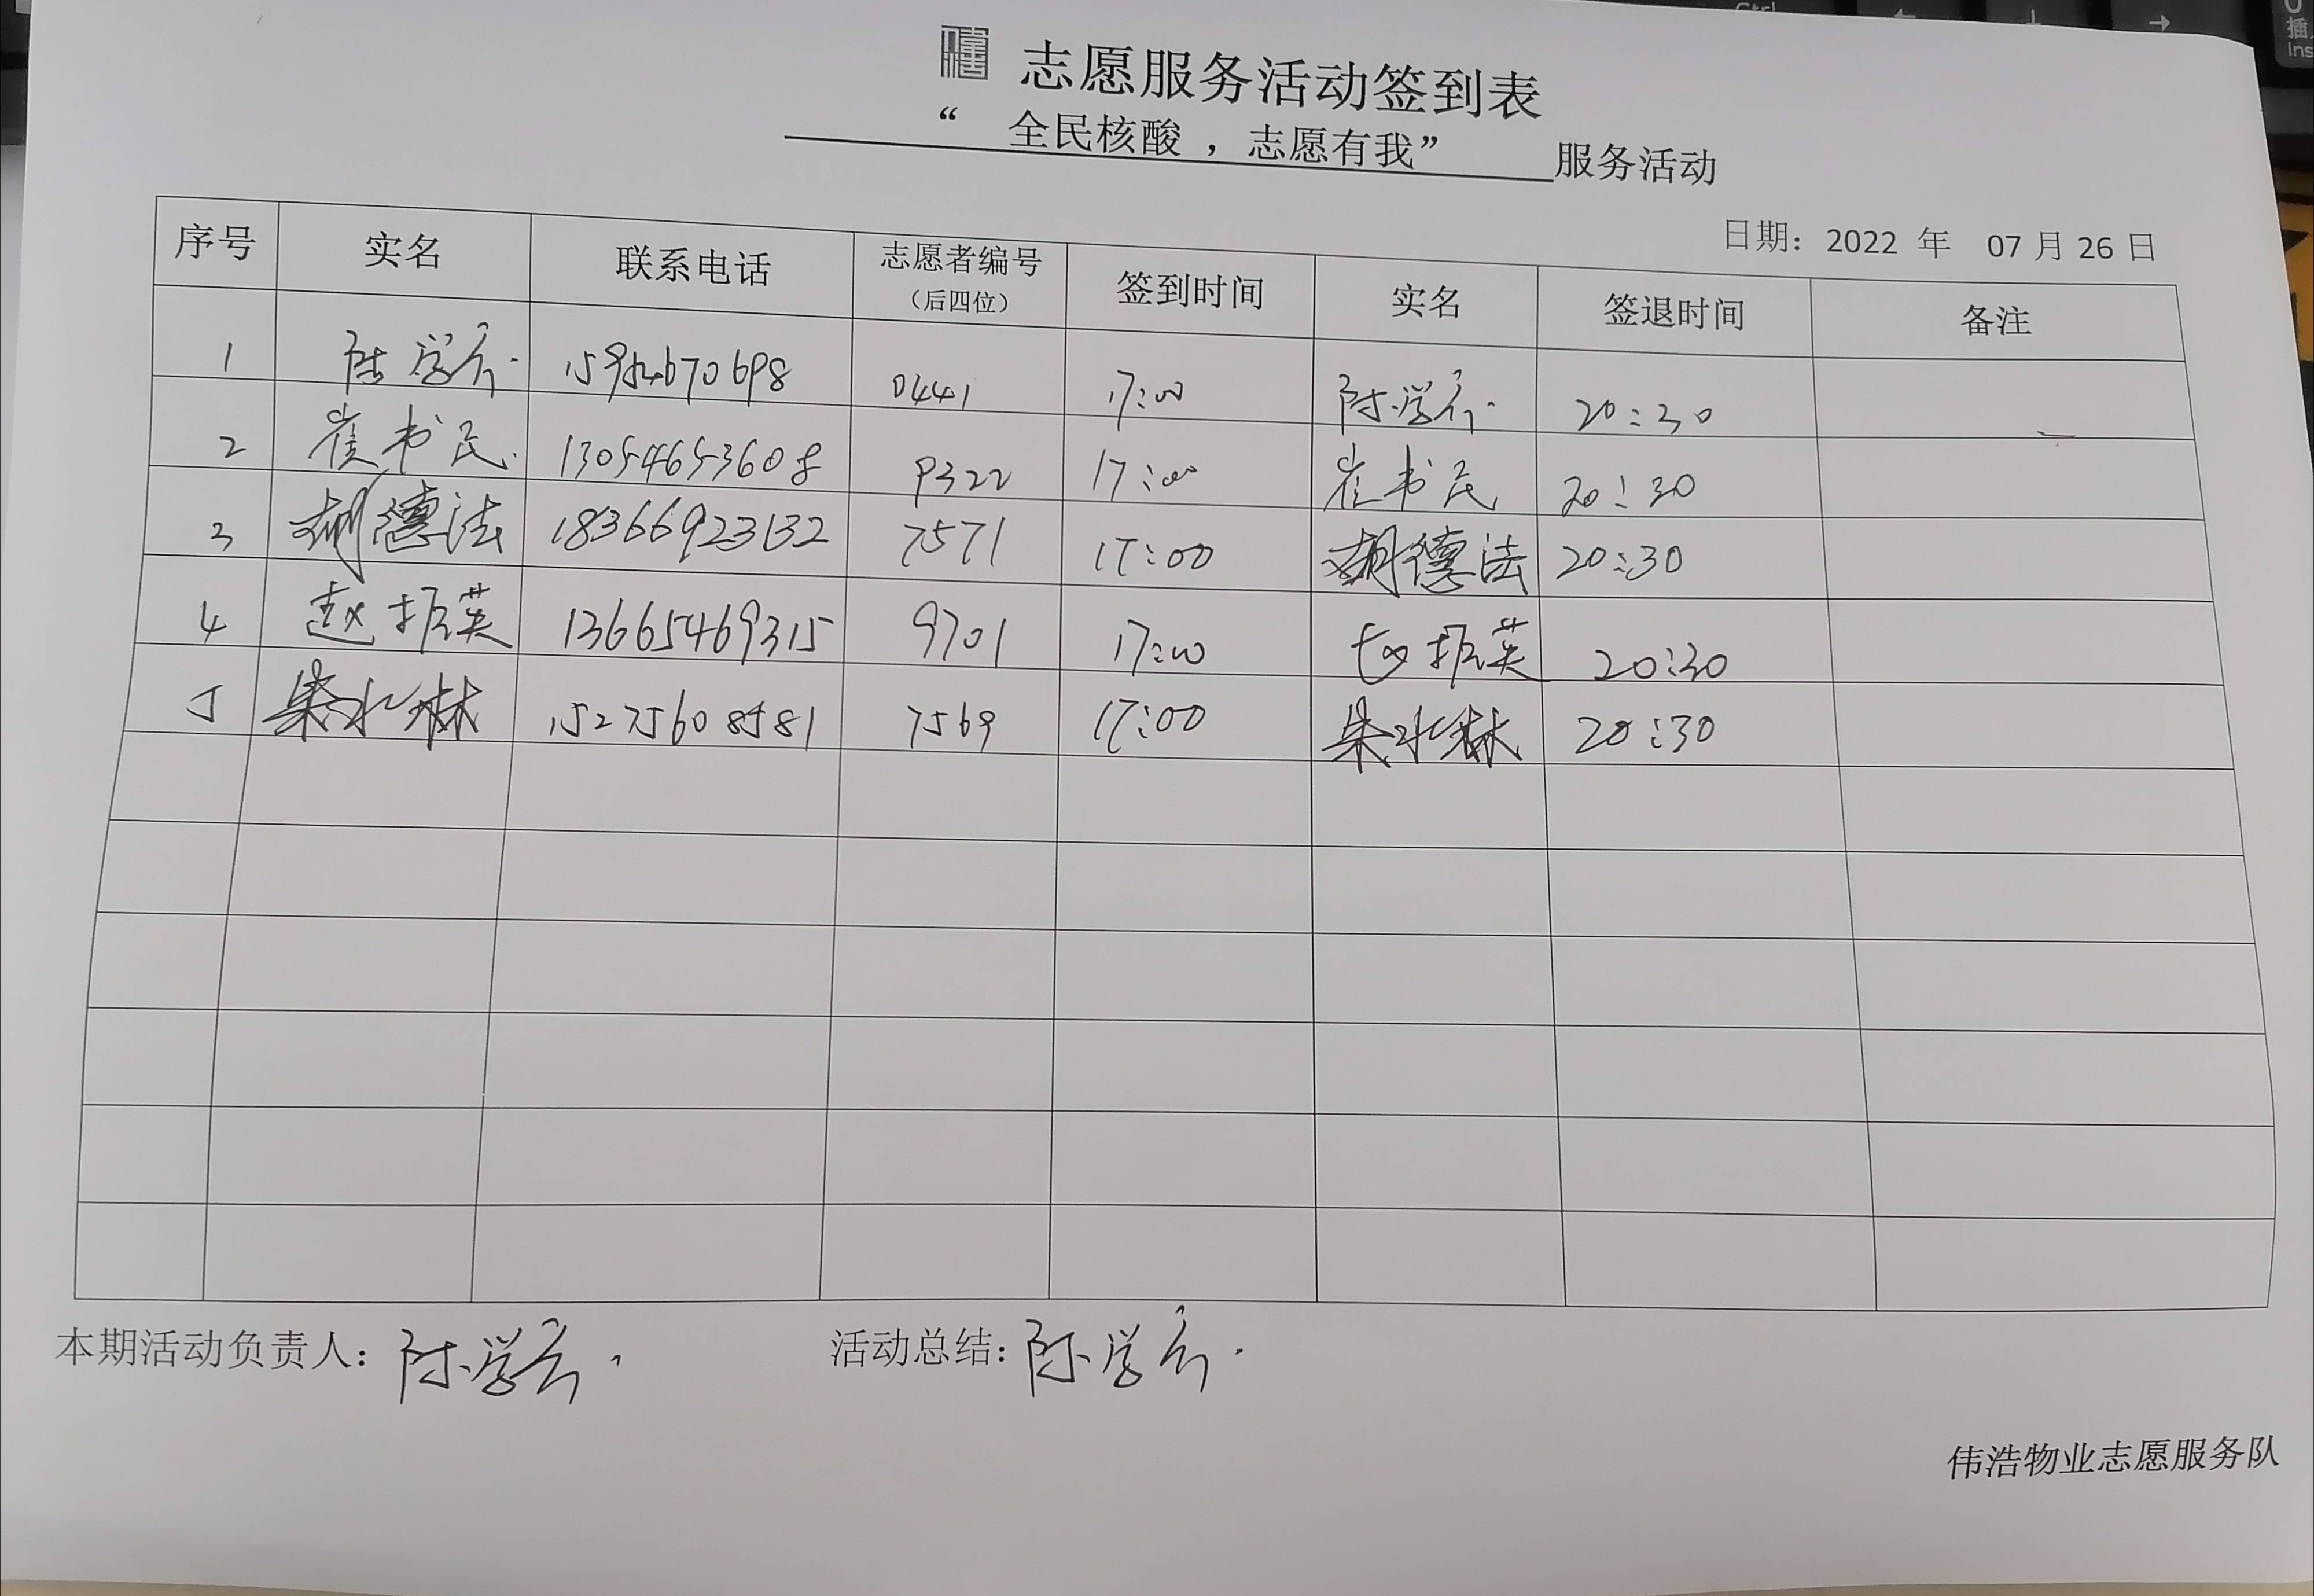 志愿服务活动签到表
“ 全民核酸 ，志愿有我” 服务活动
日期：2022 年 07 月 26 日
序号 实名 联系电话 志愿者编号（后四位） 签到时间 实名 签退时间 备注
1 陈学 0441 17:00 陈学 20:30
2 崔书民 13054653608 9322 17:00 崔书民 20:30
3 胡德法 18366923132 7571 17:00 胡德法 20:30
4 赵振英 13665469315 9701 17:00 赵振英 20:30
5 15275608581 7569 17:00 20:30
本期活动负责人：陈学 活动总结：陈学
伟浩物业志愿服务队
Ctrl
插
Ins